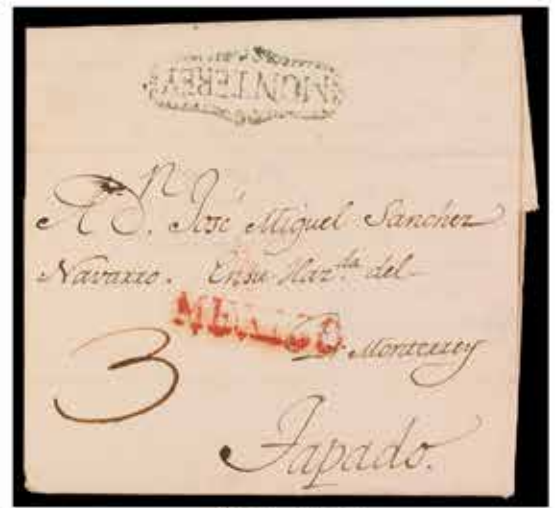 MONTEREY
A Dn. José Miguel Sanchez
Navarro. En su Haz.da del
MEXICO
Pr. Monterrey
3
Tapado.